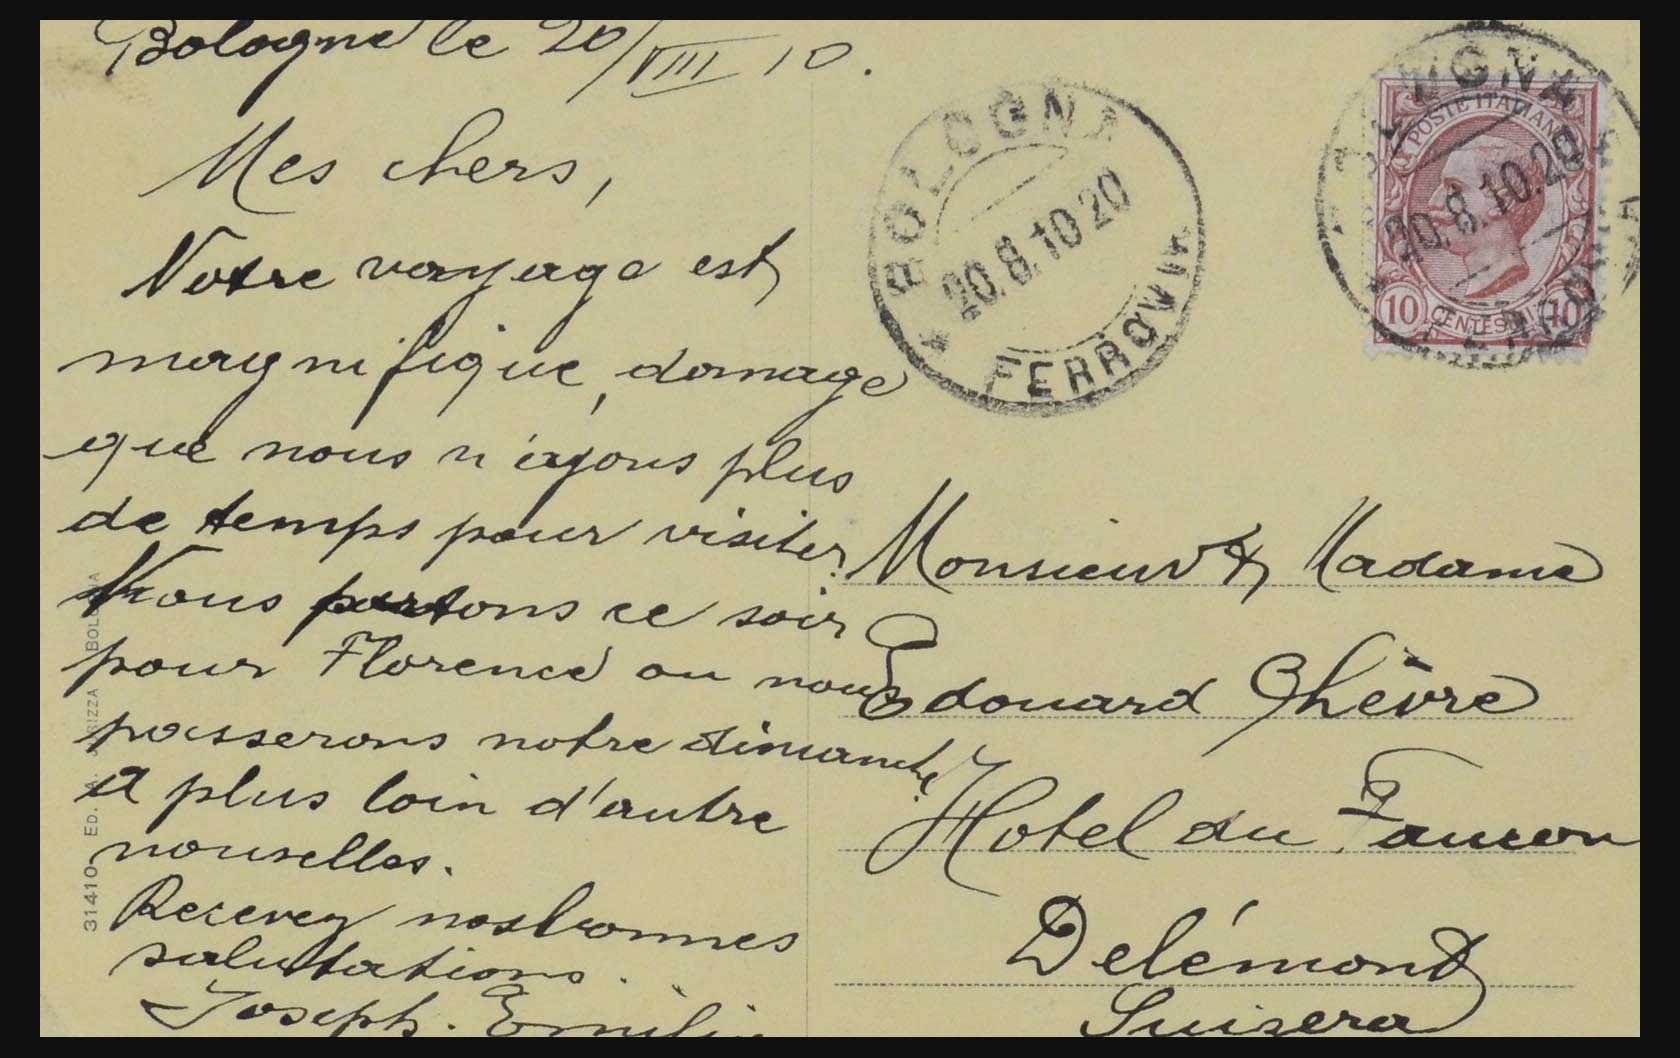 Bologne le 20/VIII 10.
Mes chers,
Notre voyage est
magnifique, domage
que nous n'ayons plus
de temps pour visiter.
Nous partons ce soir
pour Florence ou nous
passerons notre dimanche.
A plus loin d'autre
nouvelles.
Recevez nos bonnes
salutations.
Joseph. Emilie
BOLOGNA
20.8.10 20
FERROVIA
BOLOGNA
POSTE ITALIANE
20.8.10.20
10 CENTESIMI 10
FERROVIA
Monsieur & Madame
Edouard Chèvre
Hotel du Faucon
Delémont
Suizera
31410- ED. A.
BOLOGNA